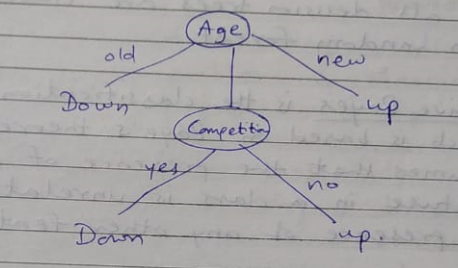 Age
old new
Down up
Competition
yes no
Down up.